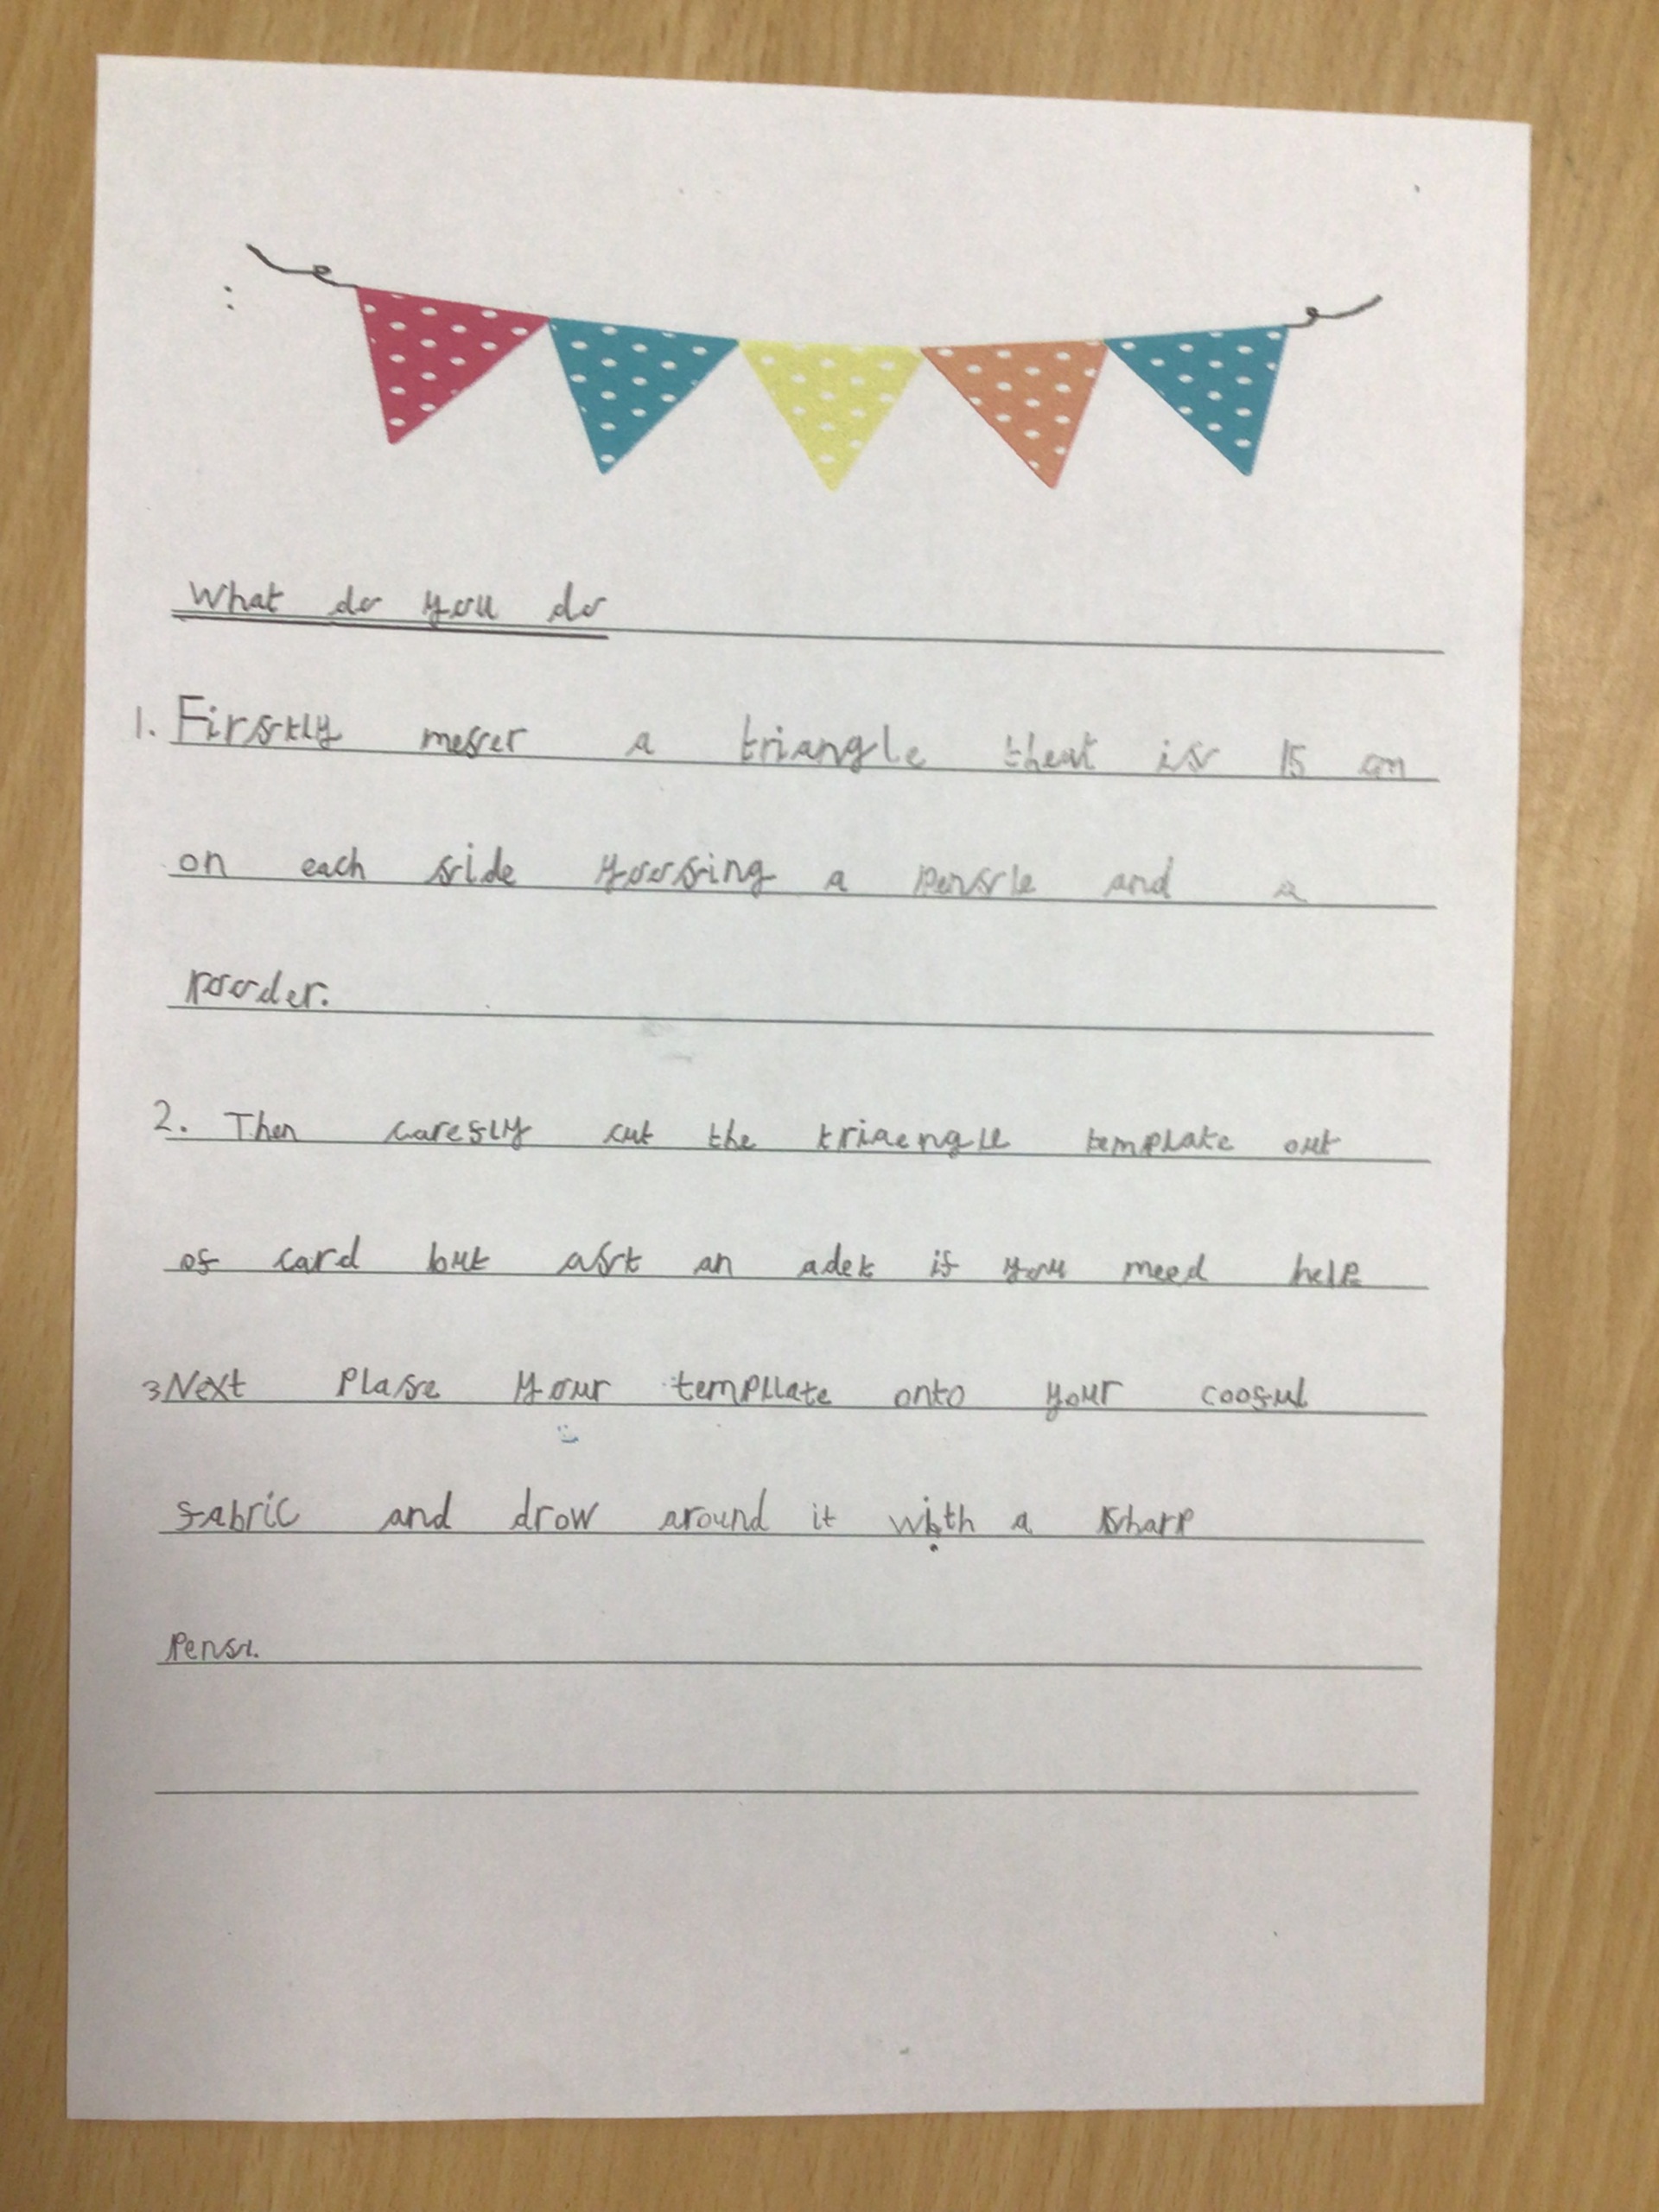 What do you do
1. Firstly meser a triangle theat is 15 cm
on each side yoosing a pensle and a
rooder.
2. Then carefly cut the triaengle template out
of card but asrt an adet if you meed help
3 Next Plase your templlate onto your coosul
fabric and drow around it with a sharp
pensl.